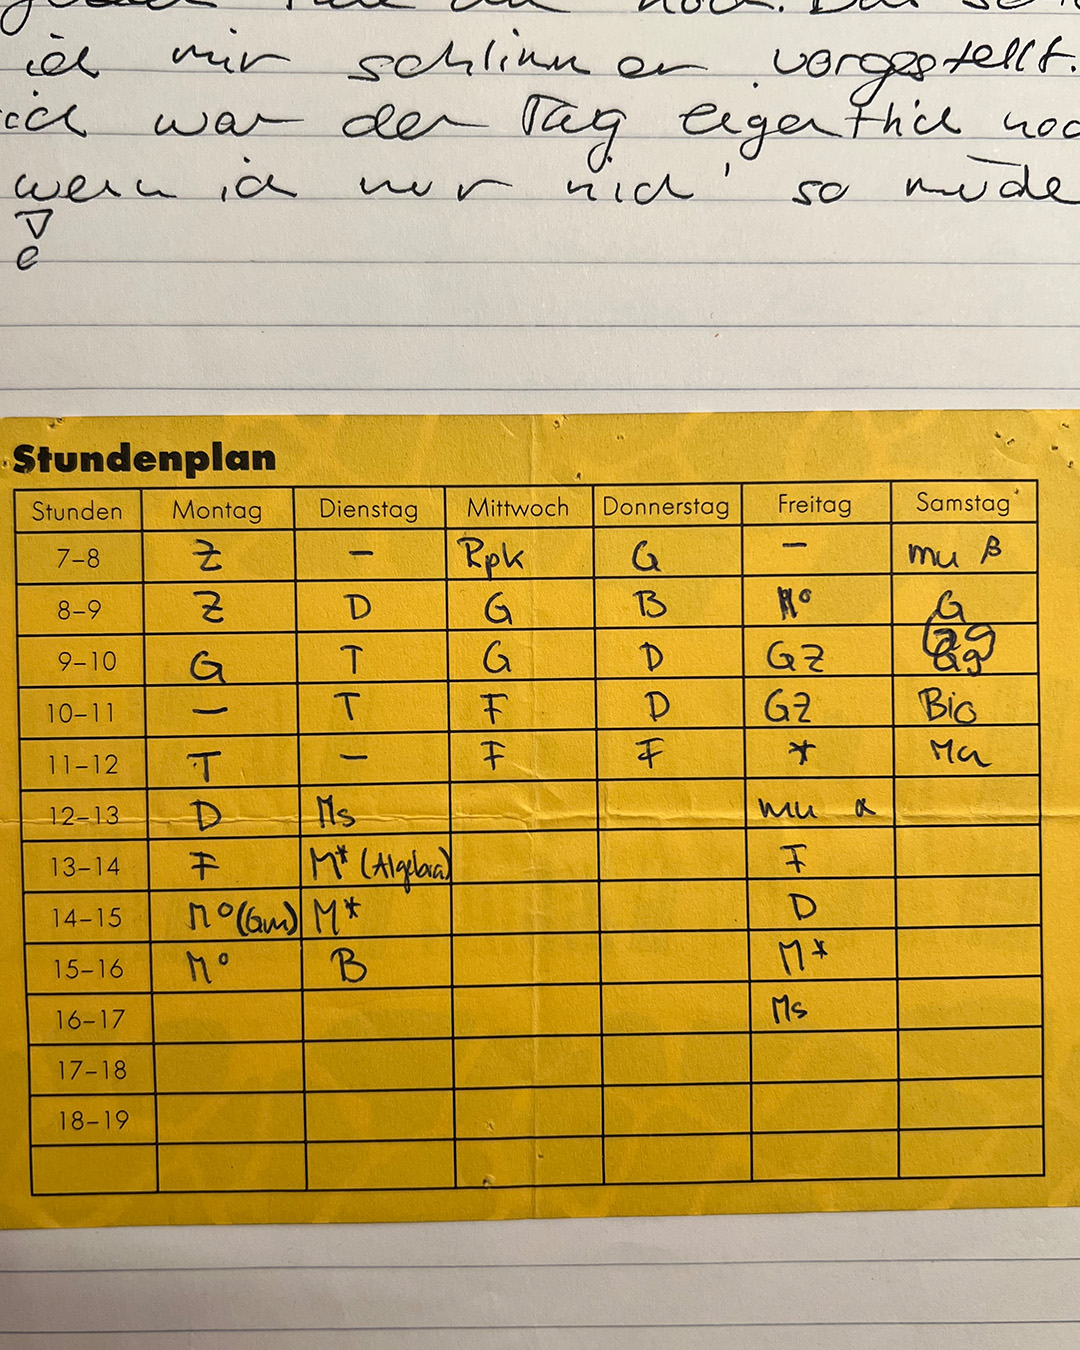 ich mir schlimmer vorgestellt.
ich war der Tag eigentlich noc
wenn ich nur nich' so müde
e
Stundenplan
Stunden Montag Dienstag Mittwoch Donnerstag Freitag Samstag
7–8 Z – Rpk G – mu β
8–9 Z D G B M° G
9–10 G T G D GZ Gg
10–11 – T F D GZ Bio
11–12 T – F F * Ma
12–13 D Ms mu α
13–14 F M* (Algebra) F
14–15 M° (Gm) M* D
15–16 M° B M*
16–17 Ms
17–18
18–19